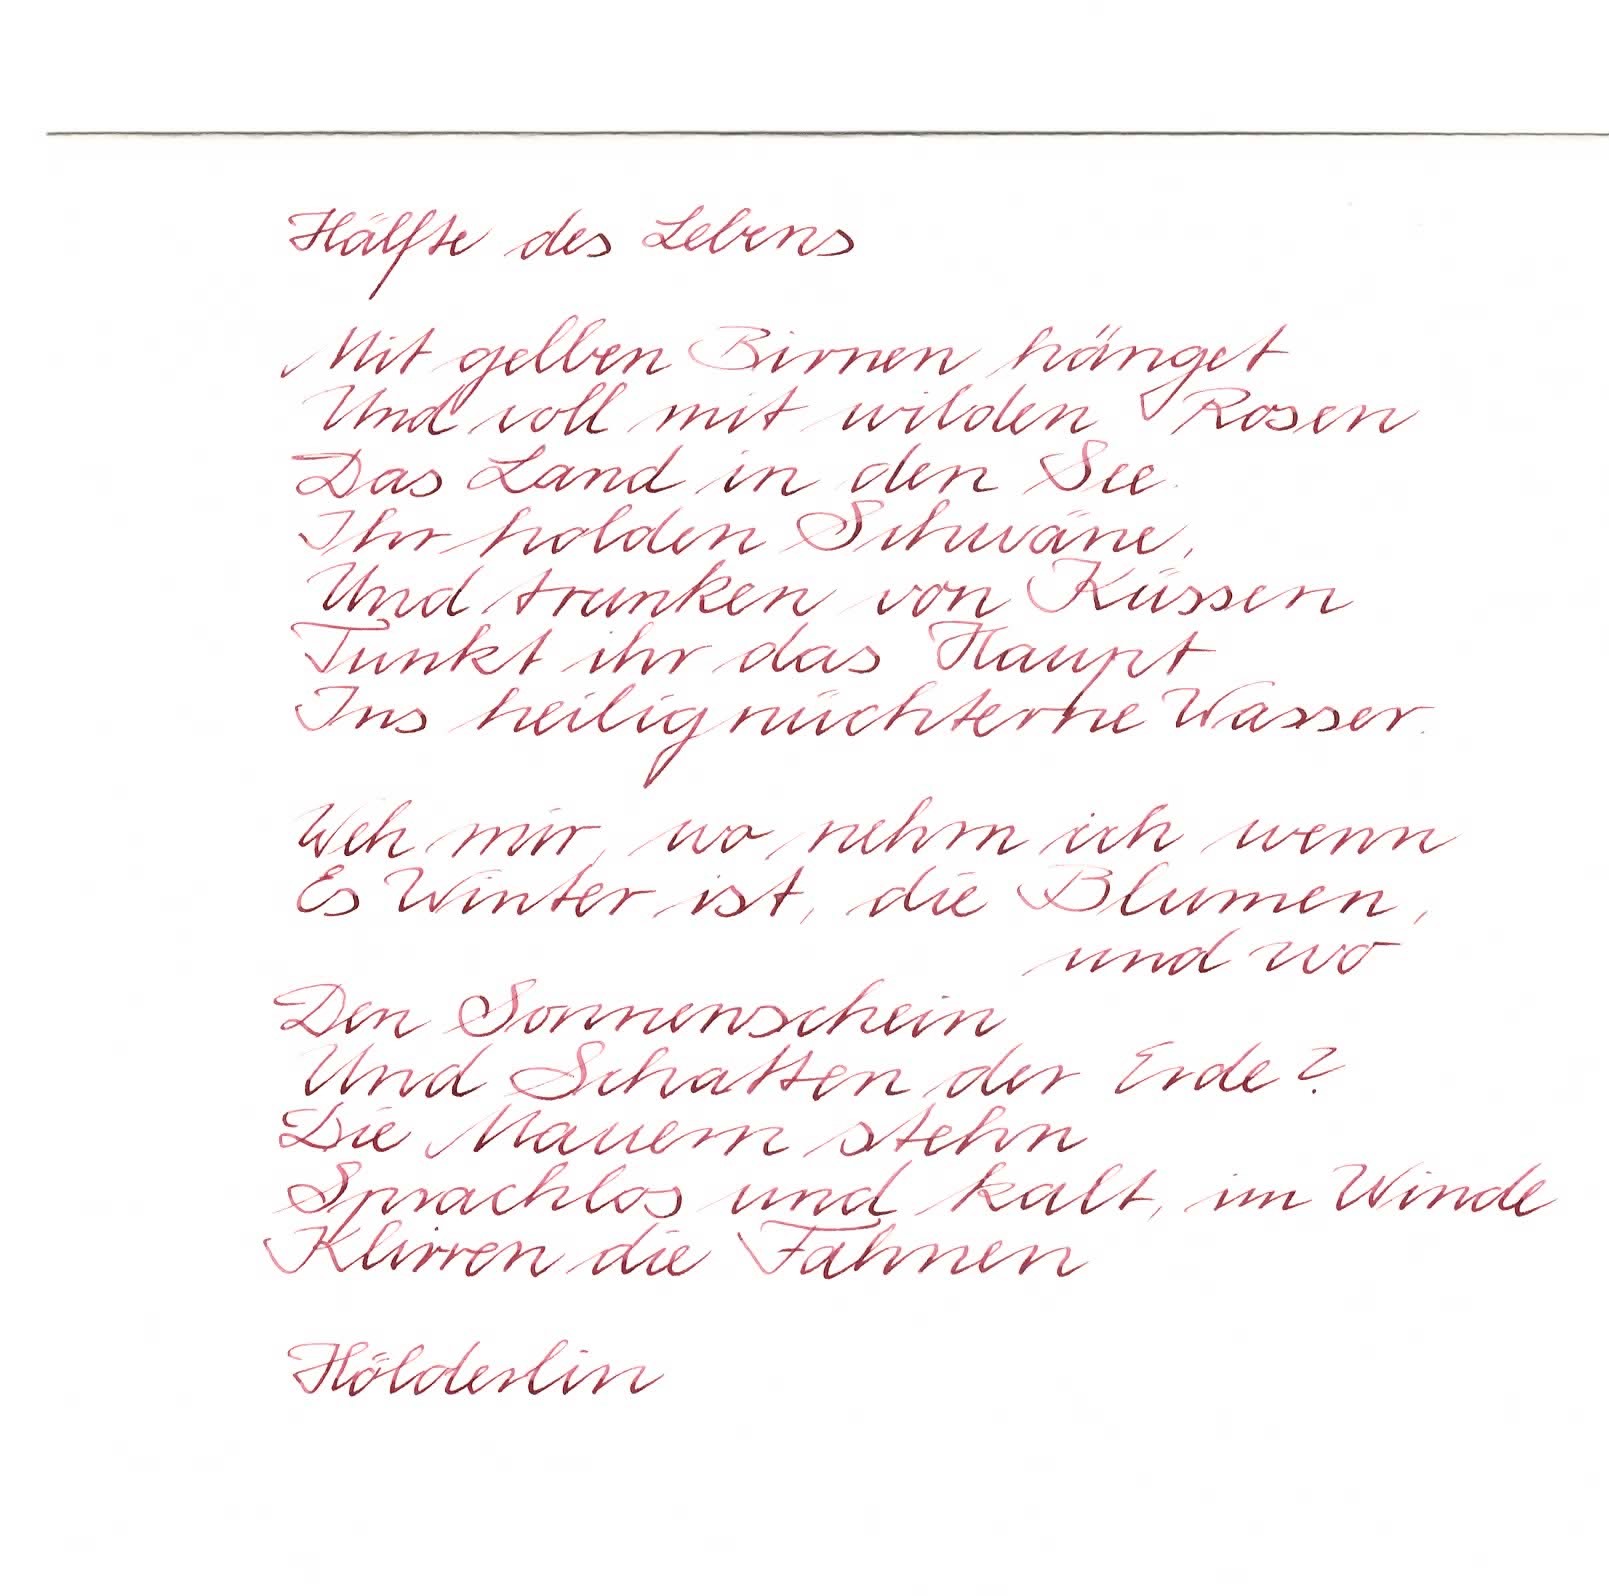 Hälfte des Lebens
Mit gelben Birnen hänget
Und voll mit wilden Rosen
Das Land in den See.
Ihr holden Schwäne,
Und trunken von Küssen
Tunkt ihr das Haupt
Ins heilignüchterne Wasser.
Weh mir, wo nehm ich wenn
Es Winter ist, die Blumen,
und wo
Den Sonnenschein
Und Schatten der Erde?
Die Mauern stehn
Sprachlos und kalt, im Winde
Klirren die Fahnen
Hölderlin